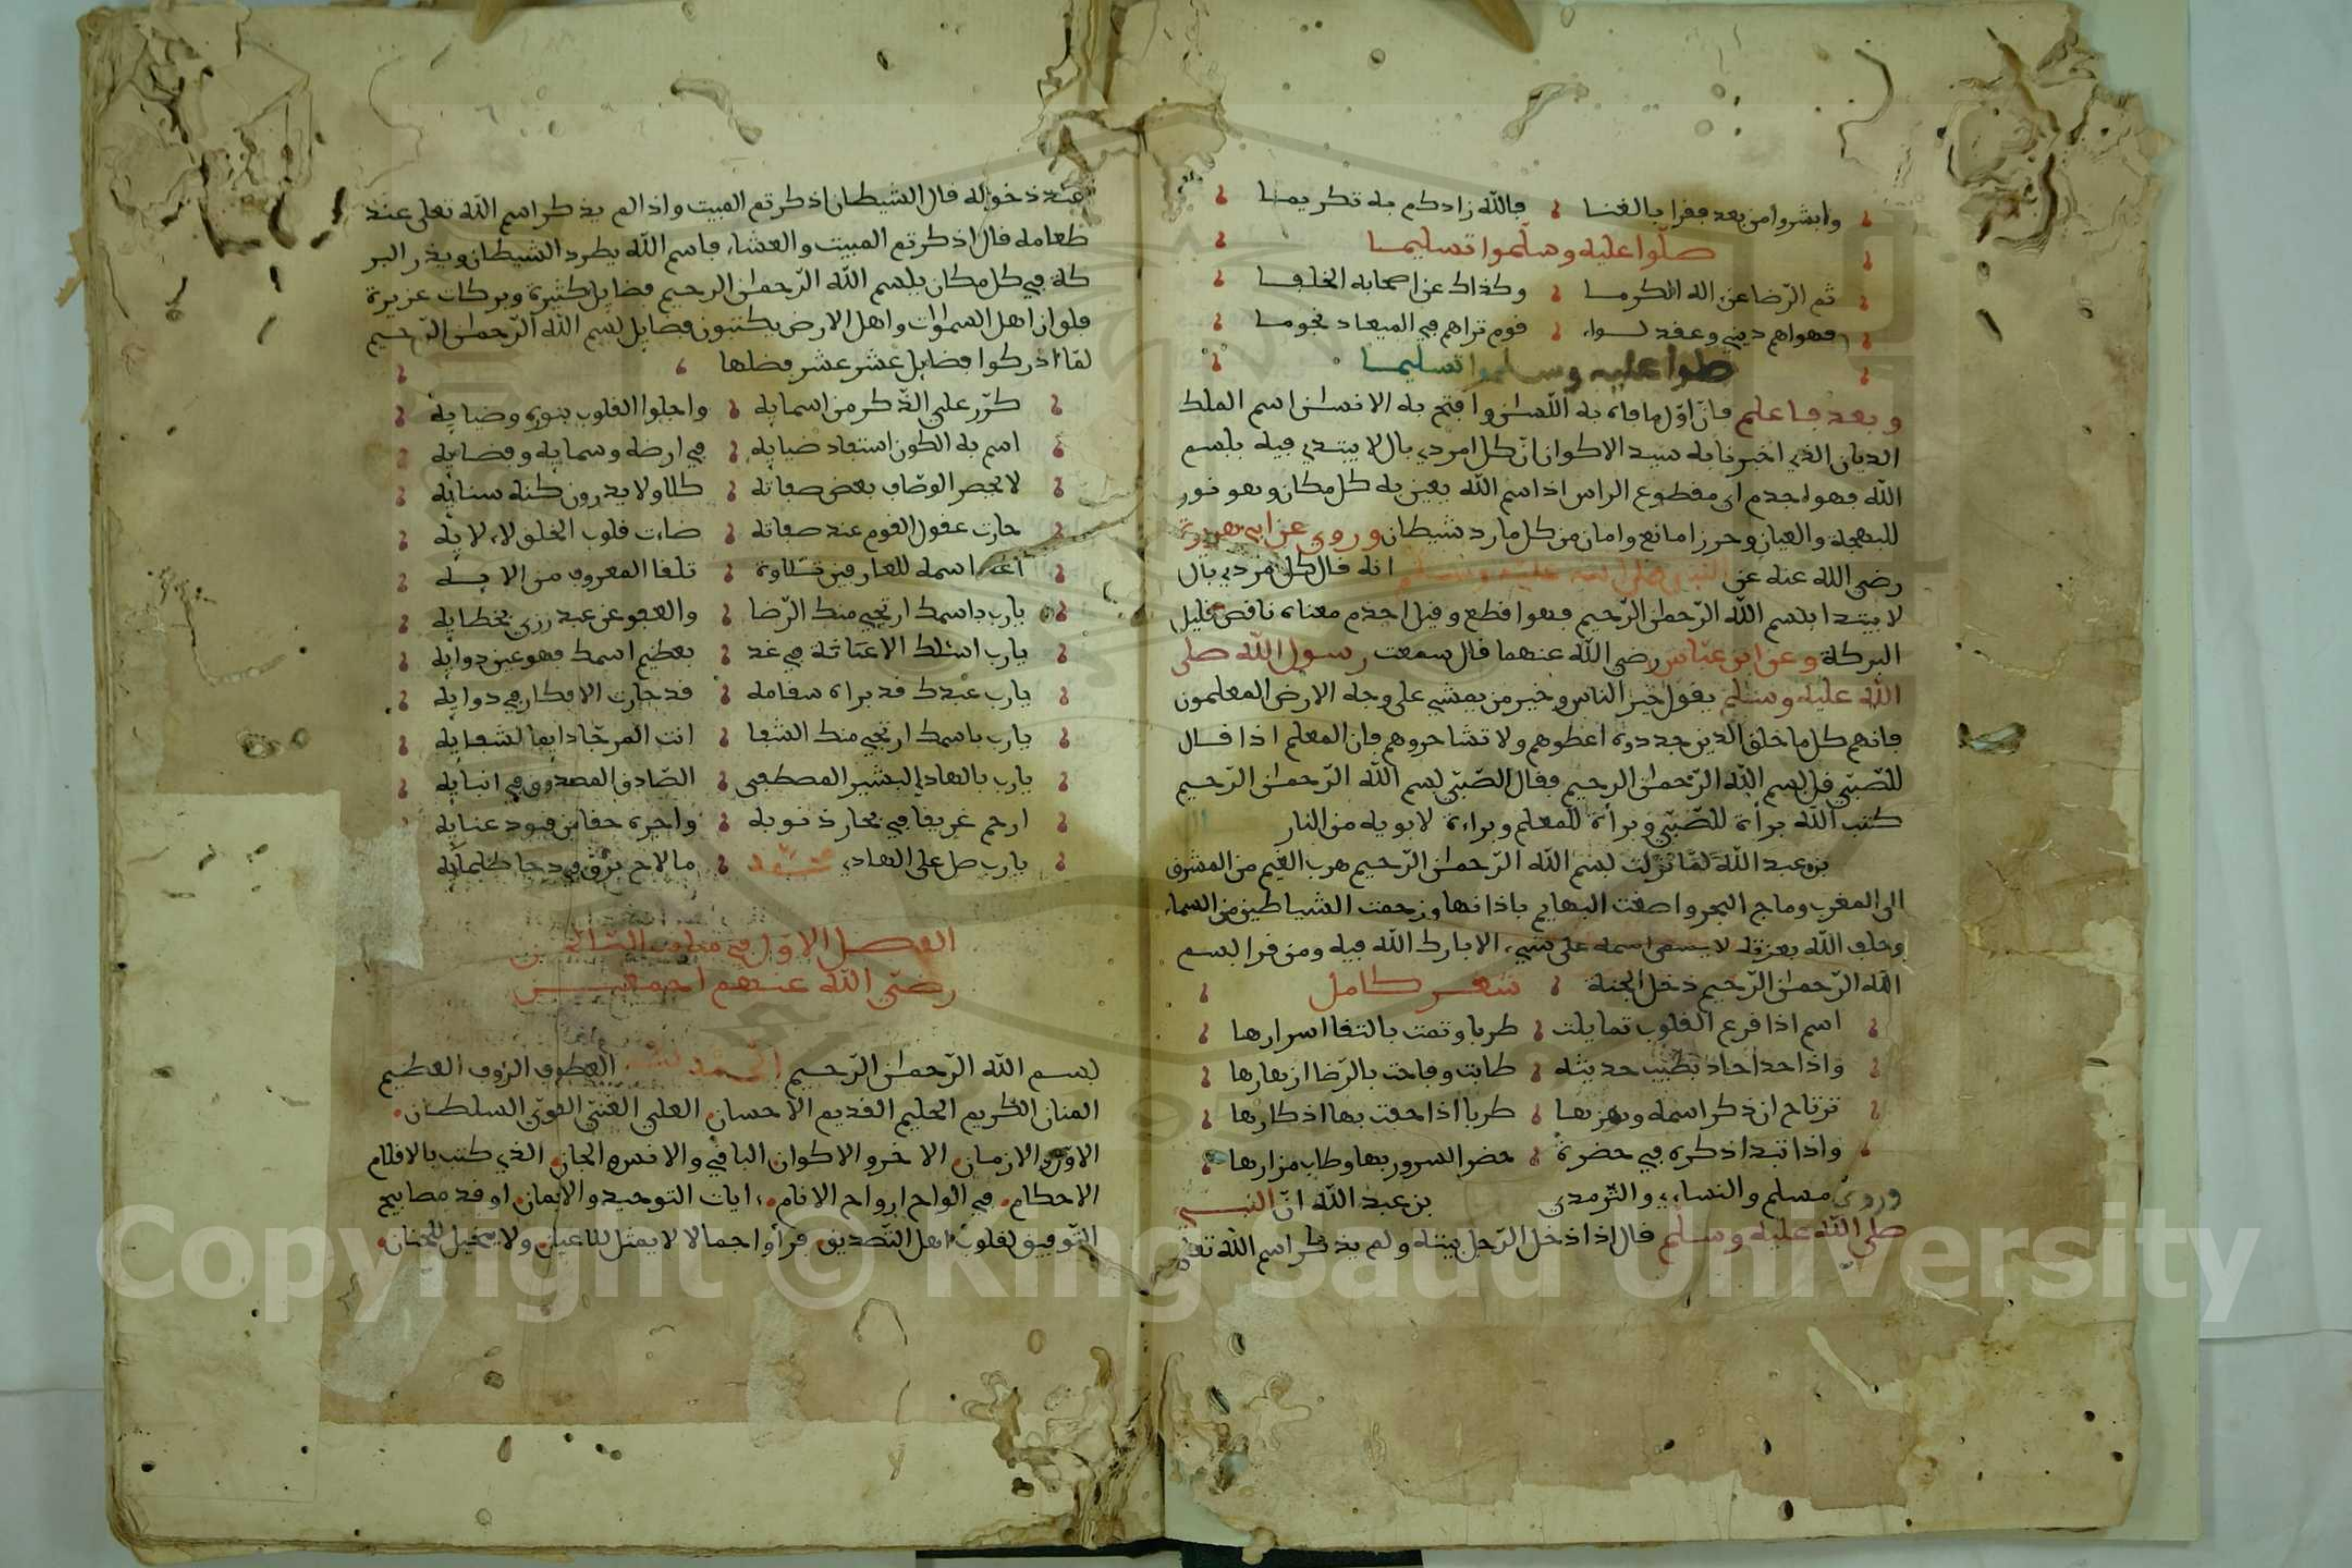 وابشروا من بعد فقرا بالغنا فالله زادكم به تكريما
صلّوا عليه وسلّموا تسليما
ثم الرّضا عن اله الكرما وكذاك عن اصحابه الخلفا
فهواهم ديني وعقد لواء قوم تراهم في الميعاد نجوما
صلوا عليه وسلموا تسليما
وبعد فاعلم فانّ اوّل ما فاه به اللّسان وافتح به الانسان اسم الملك
الديان الذي اخبرنا به سيد الاكوان انّ كل امر ذي بال لا يبتدي فيه ببسم
الله فهو اجذم اي مقطوع الراس اذا اسم الله يعين به كل مكان وهو نور
للبهجة والعيان وحرزا مانع وامان من كل مارد شيطان وروي عن ابي هريرة
رضي الله عنه عن النبي صلى الله عليه وسلم انه قال كل امر ذي بال
لا يبتدا ببسم الله الرّحمان الرّحيم فهو اقطع وقيل اجذم معناه ناقص قليل
البركة وعن ابن عبّاس رضي الله عنهما قال سمعت رسول الله صلى
الله عليه وسلم يقول خير الناس وخير من يمشي على وجه الارض المعلمون
فانهم كل ما خلق الدين جددوه اعطوهم ولا تشاجروهم فان المعلم اذا قال
للصّبي قل بسم الله الرّحمان الرحيم فقال الصّبي بسم الله الرّحمان الرّحيم
كتب الله براة للصّبي وبراة للمعلم وبراءة لابويه من النار
بن عبد الله لمّا نزلت بسم الله الرّحمان الرّحيم هرب الغيم من المشرق
الى المغرب وماج البحر واصغت البهايم باذانها وزحمت الشياطين من السماء
وحلف الله بعزته لا يسمى اسمه على شيء الا بارك الله فيه ومن قرا بسم
الله الرّحمان الرّحيم دخل الجنة شعر كامل
اسم اذا قرع القلوب تمايلت طربا وتمت بالتقا اسرارها
واذا حدا حاد بطيب حديثه طابت وفاحت بالرّضا ازهارها
ترتاح ان ذكر اسمه ويهزها طربا اذا حفت بها اذكارها
واذا تبدا ذكره في حضرة حضر السرور بها وطاب مزارها
وروى مسلم والنساءي والترمذي بن عبد الله انّ النبي
صلى الله عليه وسلم قال اذا دخل الرّجل بيته ولم يذكر اسم الله تعلى
عند دخوله قال الشيطان اذكرتم المبيت واذا لم يذكر اسم الله تعلى عند
طعامه قال اذكرتم المبيت والعشاء فاسم الله يطرد الشيطان ويذر البر
كة في كل مكان بلسم الله الرّحمان الرحيم فضايل كثيرة وبركات عزيرة
فلو ان اهل السماوات واهل الارض يكتبون فضايل بسم الله الرّحمان الرّحيم
لمّا ادركوا فضايل عشر عشر فضلها
كرّر علي الذّكر من اسمايه واجلوا القلوب بنوره وضيايه
اسم به الكون استفاد ضيايه في ارضه وسمايه وفضايه
لا يحصر الوصّاف بعض صفاته كلا ولا يدرون كنه سنايه
حارت عقول القوم عند صفاته ضاءت قلوب الخلق لاءلايه
اسمه للعارفين تلاوة تلفا المعروف من الايه
يارب باسمك ارتجي منك الرّضا والعفو عن عبد رزي بخطايه
يارب اسئلك الاغاثة في غد بعظيم اسمك فهو عين دوايه
يارب عبدك قد براه سقامه قد حارت الافكار في دوايه
يارب باسمك ارتجي منك الشفا انت المرجّا دايما لشفايه
يارب بالهادي البشير المصطفى الصّادق المصدوق في انبايه
ارحم غريقا في بحار ذنوبه واجره حقا من قيود عنايه
يارب صل على الهادي ما لاح برق في دجا ظلمايه
الفصل الاوّل في
رضيّ الله عنهم اجمعين
بسم الله الرّحمان الرّحيم الحمد لله العطوف الروف العظيم
المنان الكريم الحليم القديم الاحسان العلي الغنيّ القويّ السلطان
الاوّل والازمان الاخر والاكوان الباقي والانس والجان الذي كتب بالاقلام
الاحكام في الواح ارواح الانام ايات التوحيد والايمان اوقد مصابيح
التّوفيق لقلوب اهل التّصديق فرأوا جمالا لا يمثل للاعيان ولا يتخيل للجنان
Copyright © King Saud University